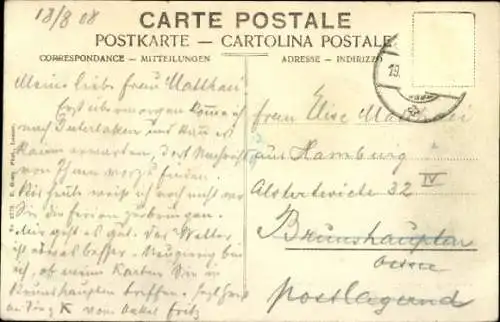 18/8 08
CARTE POSTALE
POSTKARTE — CARTOLINA POSTALE
CORRESPONDANCE — MITTEILUNGEN
ADRESSE — INDIRIZZO
19.
Meine liebe Frau Matthaei
Erst übermorgen komme ich
nach Interlaken und kann es
kaum erwarten, dort Nachricht
von Ihnen vorzufinden.
Bis heute weiß ich noch nicht wo
Sie die Ferien zubringen.
Mir geht es gut. Das Wetter
ist etwas besser. Neugierig bin
ich, ob meine Karten Sie in
Brunshaupten treffen.
vom Onkel Fritz
Frau Elise Matthaei
aus Hamburg
Alsterkwiete 32 IV
Brunshaupten
Ostsee
postlagernd